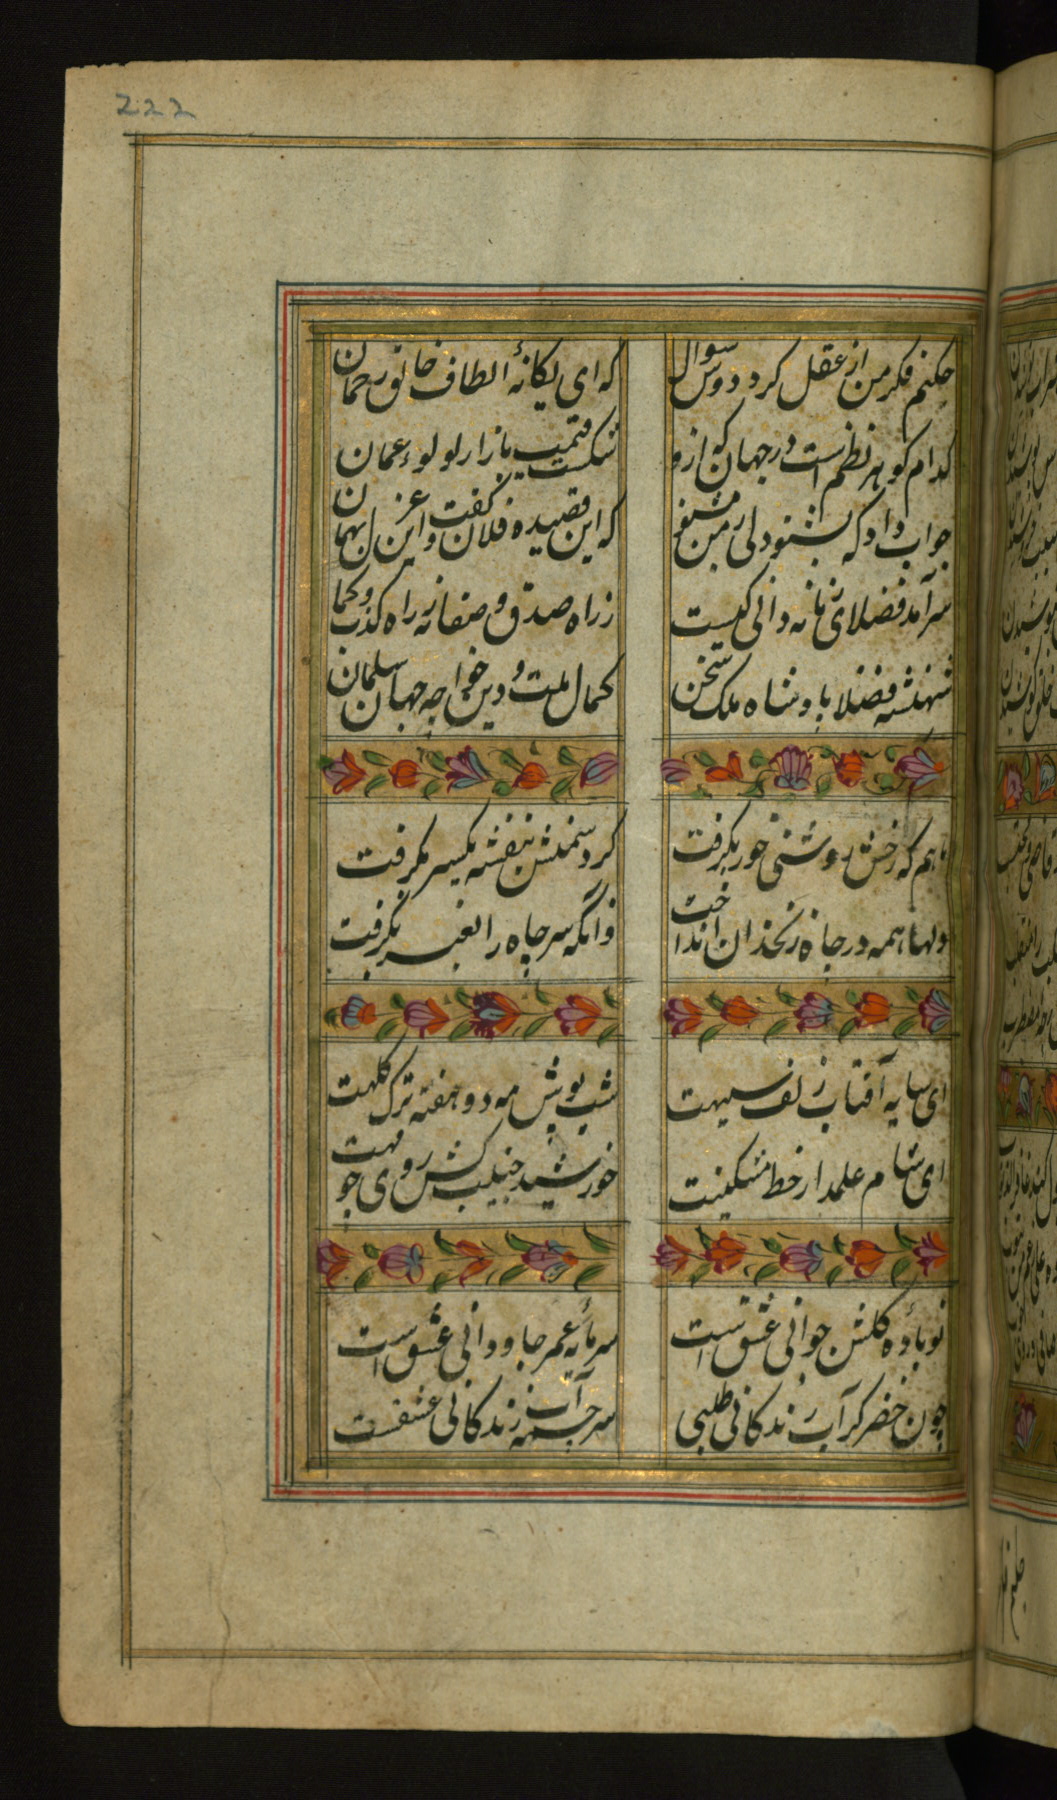 222
حکیم فکر من از عقل کرد دوش سوال
که ای یکانهٔ الطاف خالق رحمان
کدام کوهر نظم است در جهان که ازو
شکست قیمت بازار لولوء عمان
جواب داد که بشنو ولی ز من مشنو
که این قصیده فلان کفت و این غزل بهمان
سرآمد فضلای زمانه دانی کیست
ز راه صدق و صفا نه ز راه کذب و کمان
شهنشه فضلا پادشاه ملک سخن
کمال ملت و دین خواجه جهان سلمان
ماهم که رخش روشنی خور بکرفت
کرد سمنش بنفشه یکسر بکرفت
دلها همه در چاه زنخدان انداخت
وانکه سر چاه را بعنبر بکرفت
ای سایه آفتاب زلف سیهت
شب پوش مه دو هفته ترک کلهت
ای شام علمدار خط مشکینت
خورشید جنیبت کش روی چو مهت
نوباوهٔ کلشن جوانی عشق است
سرمایهٔ عمر جاودانی عشق است
چون خضر کر آب زندکانی طلبی
سرچشمه آب زندکانی عشقست